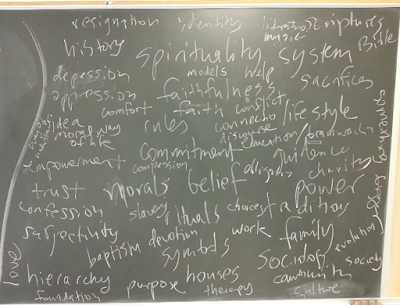 resignation identity listening music Scriptures
history spirituality system Bible
depession models help sacrifices
oppression faithfulness
comfort faith conflict lifestyle
idea rules connection
moral way of life discourse education / brainwash
commitment guidence
empowerment compession allegiance charity
trust morals belief power
confession slavery rituals choices traditions
subjectivity devotion work family
baptism symbols revelation
love Sociology society
hierarchy purpose houses community
foundation therapy culture